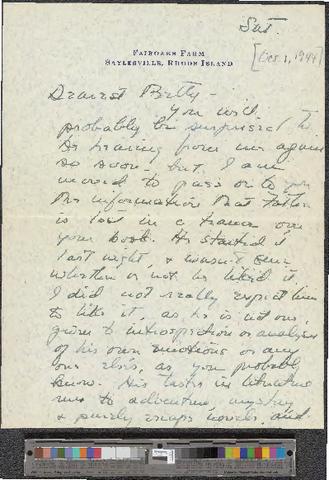 Sat.
[Oct 1, 1944]
FAIROAKS FARM
SAYLESVILLE, RHODE ISLAND
Dearest Betty -
You will
probably be surprised to
be hearing from me again
so soon - but I am
moved to pass on to you
the information that Father
is lost in a trance over
your book. He started it
last night, & wasn't sure
whether or not he liked it.
I did not really expect him
to like it, as he is not one
given to introspection or analysis
of his own emotions or any
one else's, as you probably
know. His tastes in literature
run to adventure, mystery
& purely escape novels, and